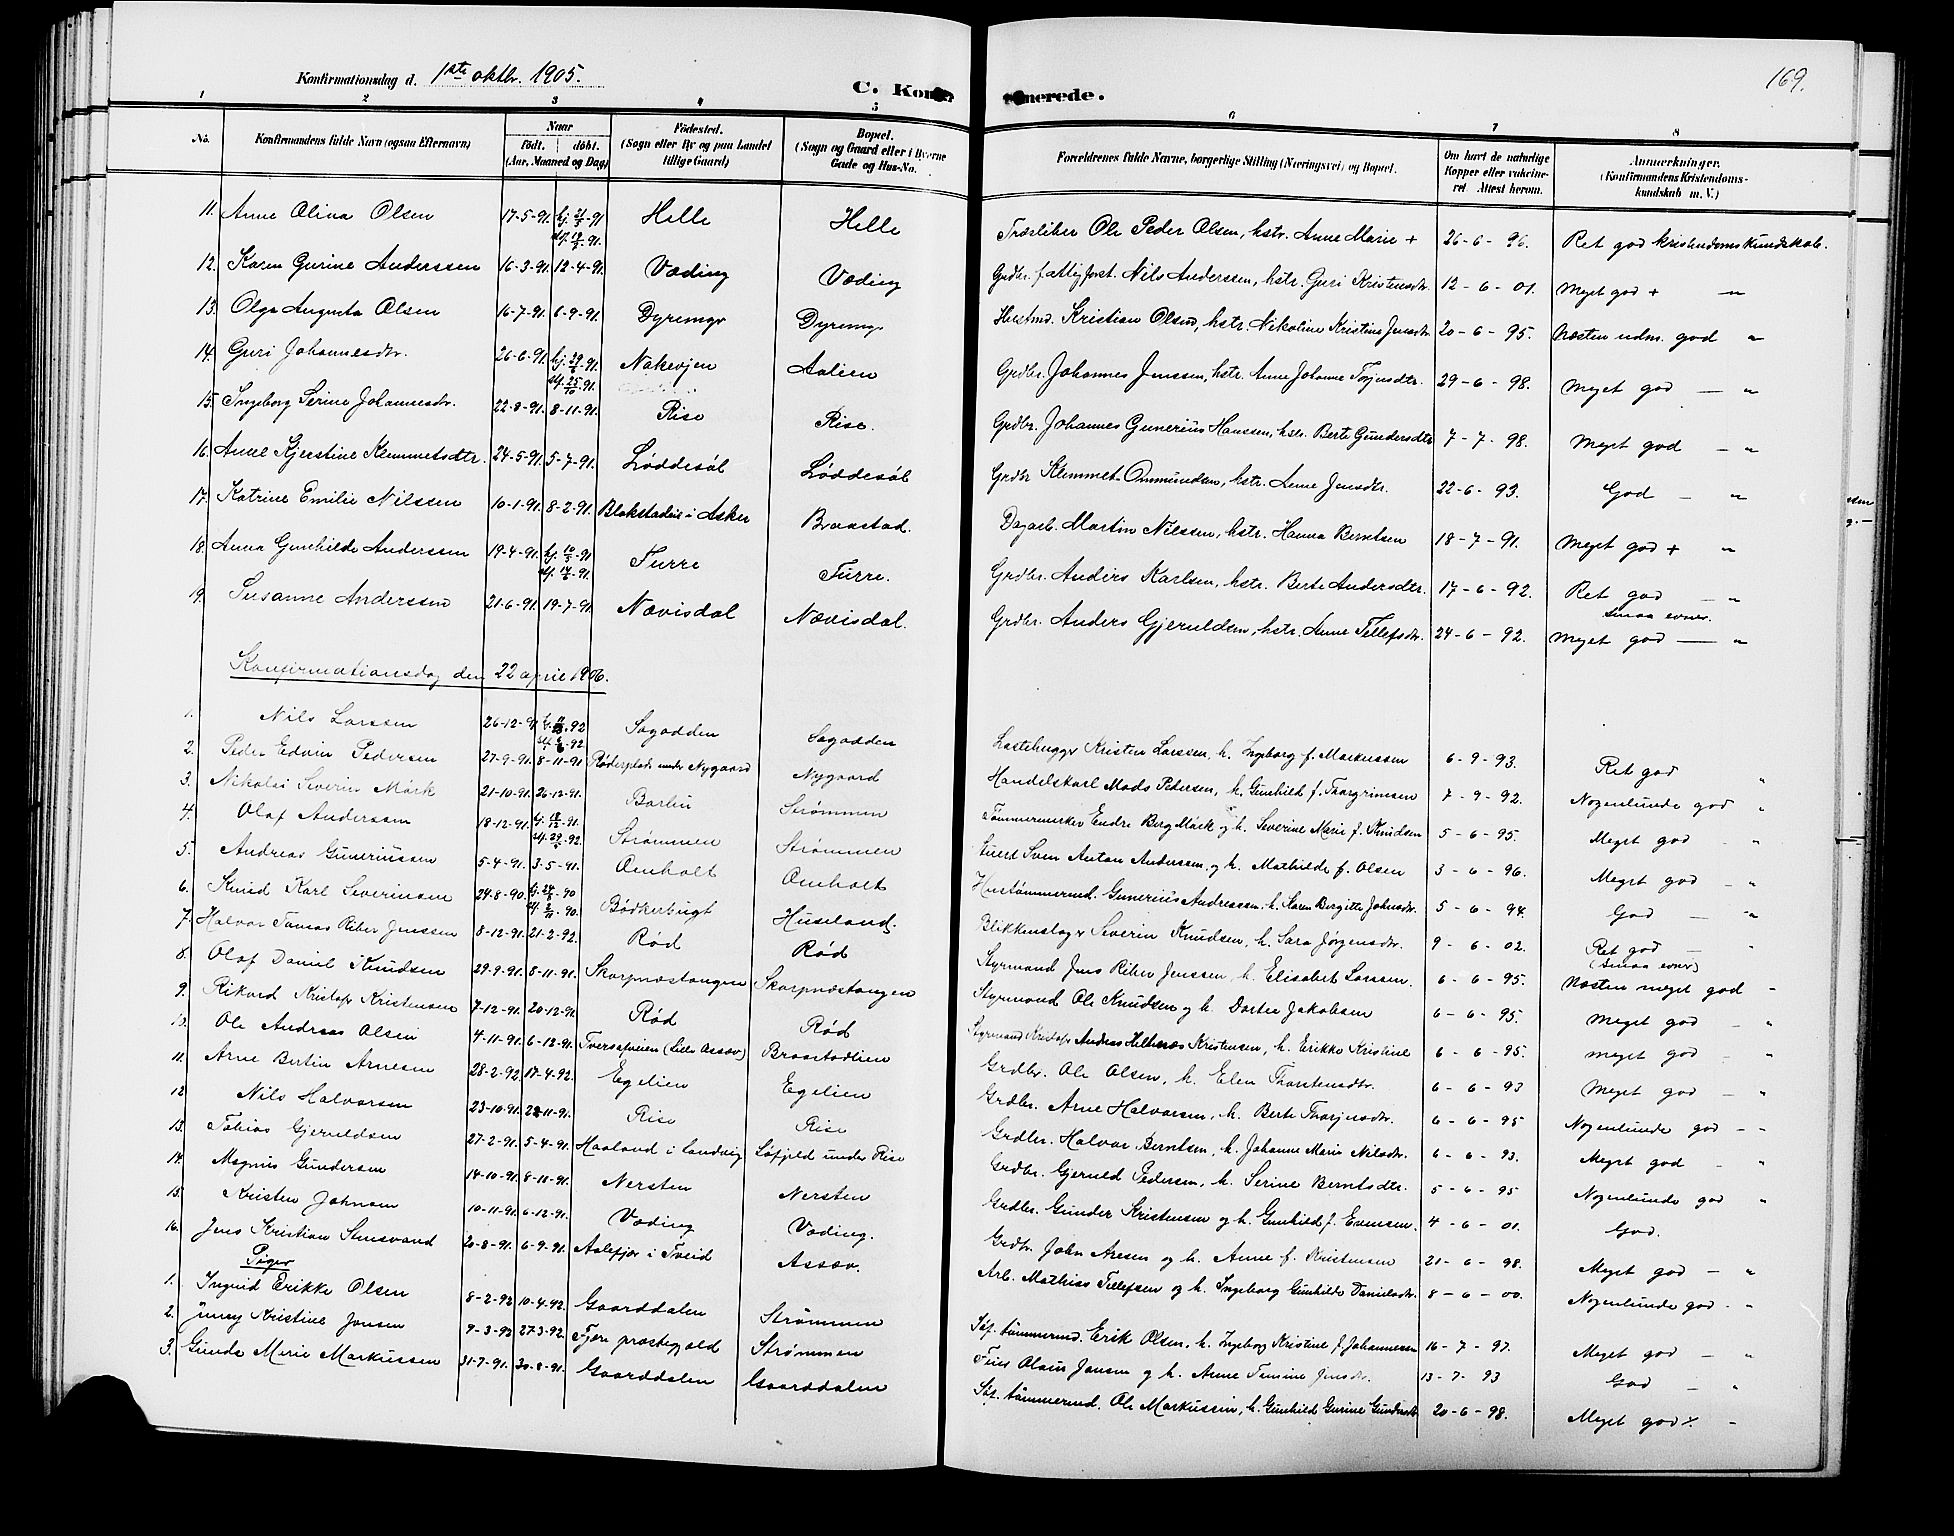 Konfirmationsdag d. 1ste oktbr. 1905.
C. Kon
merede.
169.
1 2 3 4 5 6 7 8
No.
Konfirmandens fulde Navn (ogsaa Efternavn)
Naar
født. døbt.
(Aar, Maaned og Dag)
Fødested.
(Sogn eller By og paa Landet
tillige Gaard)
Bopæl.
(Sogn og Gaard eller i Byerne
Gade og Hus-No.
Forældrenes fulde Navne, borgerlige Stilling (Næringsvei) og Bopæl.
Om havt de naturlige
Kopper eller vakcine-
ret. Attest herom.
Anmærkninger.
(Konfirmandens Kristendoms-
kundskab m. V.)
11. Anne Olina Olsen 17-5-91. hj. -91 Helle Helle Ole Peder Olsen, hstr. Anne Marie + 26-6-96. Ret god kristendomskundskab.
12. Karen Gurine Anderssen 16-3-91. 12-4-91. Væding Væding Grdbr. Nils Anderssen, hstr. Guri Kristensdtr. 12-6-01. Meget god + — "
13. Olga Augusta Olsen 16-7-91. 6-9-91. Dyremyr Dyremyr Kristian Olsen, hstr. Nikoline Kristine Jensdtr. 20-6-95. Næsten udm. god "
14. Guri Johannesdtr. 26-6-91. hj. 29/6-91. stf. 25/10-91. Nakevjen Aalien Grdbr. Johannes Jenssen, hstr. Anne Johanne Terjesdtr. 29-6-98. Meget god — "
15. Ingeborg Serine Johannesdtr. 22-8-91. 8-11-91. Rise Rise. Grdbr. Johannes Gunerius Hanssen, hstr. Berte Gundersdtr 7-7-98. Meget god — "
16. Anne Kjerstine Klemmetsdtr. 24-5-91. 5-7-91. Løddesøl Løddesøl Grdbr Klemmet Ommundsen, hstr. Anne Jensdtr. 22-6-93. God — "
17. Katrine Emilie Nilssen 10-1-91. 8-2-91. Blakstadeie i Asker Braastad. Dagarb. Martin Nilssen, hstr. Hanna Berntsen 18-7-91. Meget god + "
18. Anna Gunhilde Anderssen 19-4-91. hj. 10/5-91 stf. -91. Furre Furre. Grdbr. Anders Karlsen, hstr. Berte Andersdtr. 17-6-92. Ret god — "
Smaa evner.
19. Susanne Anderssen 21-6-91. 19-7-91. Nævisdal Nævisdal. Grdbr. Anders Gjeruldsen, hstr. Anne Tellefsdtr. 24-6-92. Meget god — "
Konfirmationsdag den 22 april 1906.
1. Nils Larssen 26-12-91 hj. -92 stf. -92 Sagodden Sagodden Lastehugger Kristen Larssen, h. Ingeborg f. Markussen 6-9-93. Ret god "
2. Peder Edvin Pedersen 27-9-91. 8-11-91. under Nygaard Nygaard Handelskarl Mads Pedersen, h. Gunhild f. Thorgrimsen 7-9-92. Nogenlunde god "
3. Nikolai Severin Mørk 21-10-91. 26-12-91. Barbu Strømmen Tømmermerker Endre Berg Mørk og h. Severine Marie f. Knudsen 5-6-95. Meget god "
4. Olaf Anderssen 18-12-91. hj. -91. stf. -92. Strømmen Strømmen Sven Anton Anderssen og h. Mathilde f. Olsen 3-6-96. Meget god — "
5. Andreas Guneriussen 5-4-91. 3-5-91. Omholt Omholt Hustømmermd. Gunerius Andreassen, h. Karen Bergitte Johnsdtr. 5-6-94. God — "
6. Knud Karl Severinsen 24-8-90. hj. 24/8-90 stf. 2/11-90. Bødkerbugt Huseland. Blikkenslager Severin Knudsen, h. Sara Jørgensdtr. 9-6-02. Ret god —
(Smaa evner)
7. Halvor Tomas Riber Jenssen 8-12-91. 21-2-92. Rød Rød Styrmand Jens Riber Jenssen, h. Elisabet Larssen. 6-6-95. Næsten meget god "
8. Olaf Daniel Knudsen 29-9-91. 8-11-91. Skarpnæstangen Skarpnæstangen Styrmand Ole Knudsen og h. Dorte Jakobsen 6-6-95. Meget god — "
9. Rikard Kristofer Kristensen 7-12-91. 20-12-91. Rød Rød Styrmand Kristofer Andreas Helnæs Kristensen, h. Erikke Kristine 6-6-95. Meget god — "
10. Ole Andreas Olsen 4-11-91. 6-12-91. Tversafveien (Lille Assæv) Braastadlien Grdbr. Ole Olsen, h. Elen Thorstensdtr. 6-6-93 Meget god — "
11. Arne Bertin Arnesen 28-2-92. 17-4-92. Egelien Egelien Grdbr. Arne Halvorsen, h. Berte Thorjusdtr. 6-6-95 Nogenlunde god - -
12. Nils Halvorsen 23-10-91. 22-11-91. Rise Rise Grdbr. Halvor Berntsen, h. Johanne Marie Nilsdtr. 6-6-93. Meget god - "
13. Tobias Gjeruldsen 27-2-91. 5-4-91. Haaland i Landvig Løfjeld under Rise Grdbr. Gjeruld Pedersen, h. Serine Berntsdtr. 5-6-95 Nogenlunde god "
14. Magnus Gundersen 14-10-91. 8-11-91. Nersten Nersten Grdbr. Gunder Kristensen og h. Gunhild f. Evensen. 4-6-01. God.
15. Kristen Johnsen 10-11-91. 6-12-91. Væding Væding. Grdbr. John Aresen og h. Anne f. Kristensen 21-6-98. Meget god — "
16. Jens Kristian Stensvand 20-8-91. 6-9-91. Aalefjær i Tveid Assæv. Arb. Mathias Tellefsen og h. Ingeborg Gunhilde Danielsdtr. 8-6-00. Nogenlunde god - "
Piger
1. Ingrid Erikke Olsen 8-2-92 10-4-92. Gaarddalen Strømmen Søf. tømmermd. Erik Olsen, h. Ingeborg Kristine f. Johannesen 16-7-97. Meget god — "
2. Jenny Kristine Jonsen 9-3-92 27-3-92. Fjære prestegjeld Strømmen Olaus Jonsen og h. Anne Tomine Jensdtr. 13-7-93 God — "
3. Gunde Marie Markussen 31-7-91. 30-8-91. Gaarddalen Gaarddalen Søf. tømmermd. Ole Markussen, h. Gunhild Gurine Gundersdtr 20-6-98. Meget god "